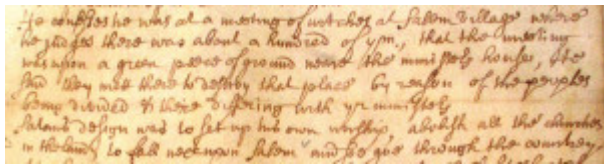 He confesses he was at a meeting of witches at Salem Village where
he judges there was about a hundred of ym, that the meeting
was upon a green peece of ground neere the ministers house, He
said they mett there to destroy that place by reason of the peoples
being divided & theire differing with yr ministers
Satans design was to set up his own worship, abolish all the churches
in the land, to fall next upon Salem and soe goe through the countrey,